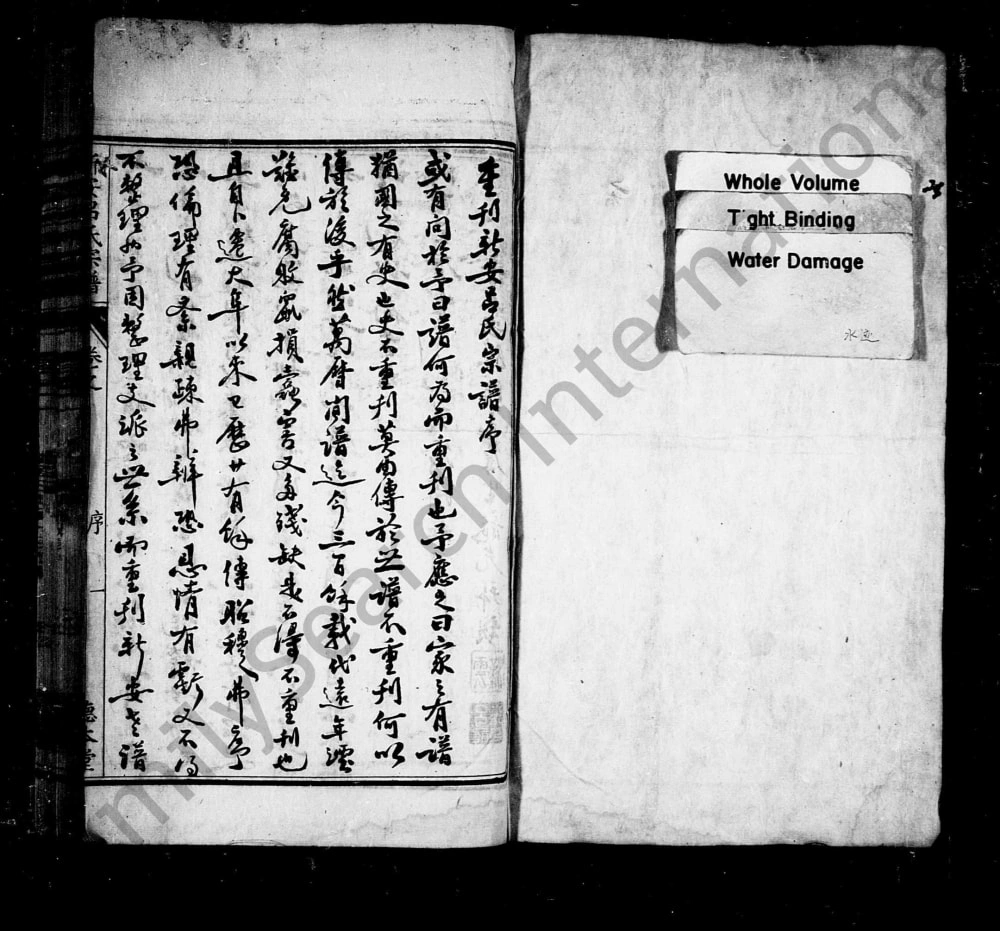 Whole Volume
Tight Binding
Water Damage
水迹
重刊新安呂氏宗譜序
或有問於予曰譜何為而重刊也予應之曰家之有譜
猶國之有史也史不重刊莫由傳於世譜不重刊何以
傳於後乎然萬曆間譜迄今三百餘載代遠年湮
難免腐敗鼠損蠹害又多殘缺是不得不重刊也
且自卜遷大阜以來已歷廿有餘傳昭穆弗序
恐倫理有紊親疎弗辨恐恩情有虧又不得
不整理也予因整理支派之世系而重刊新安老譜
呂氏宗譜
序
一
FamilySearch International